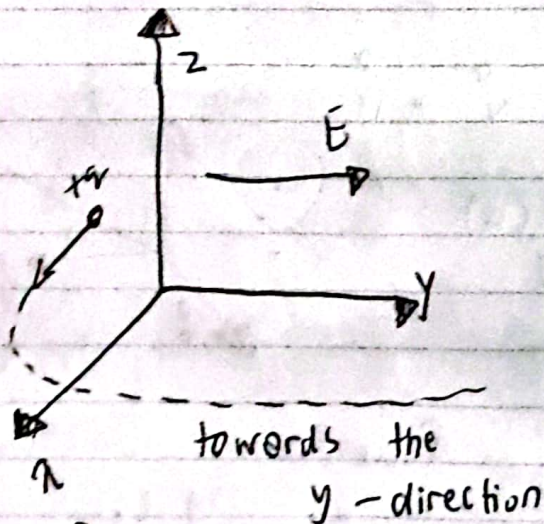 z
E
+q
y
x
towards the
y - direction